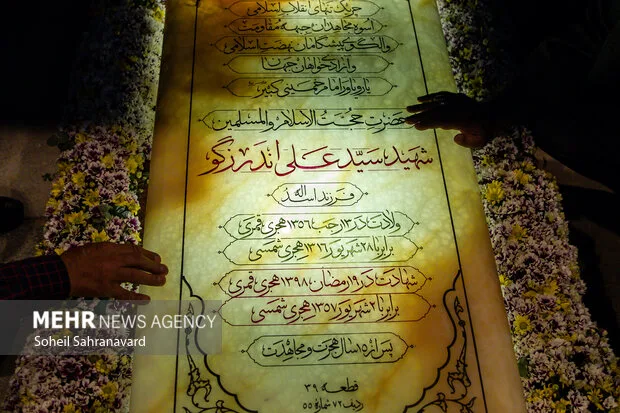 چریک تنهای انقلاب اسلامی
اسوه مجاهدان جبهه مقاومت
والگوی پیشگامان نهضت اسلامی
و آزادیخواهان جهان
یار و یاور امام خمینی کبیر
حضرت حجت الاسلام والمسلمین
شهید سید علی اندرزگو
فرزند اسدالله
ولادت در ۱۳ رجب ۱۳۵۶ هجری قمری
برابر با ۲۸ شهریور ۱۳۱۶ هجری شمسی
شهادت در ۱۹ رمضان ۱۳۹۸ هجری قمری
برابر با ۲ شهریور ۱۳۵۷ هجری شمسی
پس از ۱۵ سال هجرت و مجاهدت
قطعه ۳۹
ردیف ۷۲ شماره ۵۵
MEHR NEWS AGENCY
Soheil Sahranavard